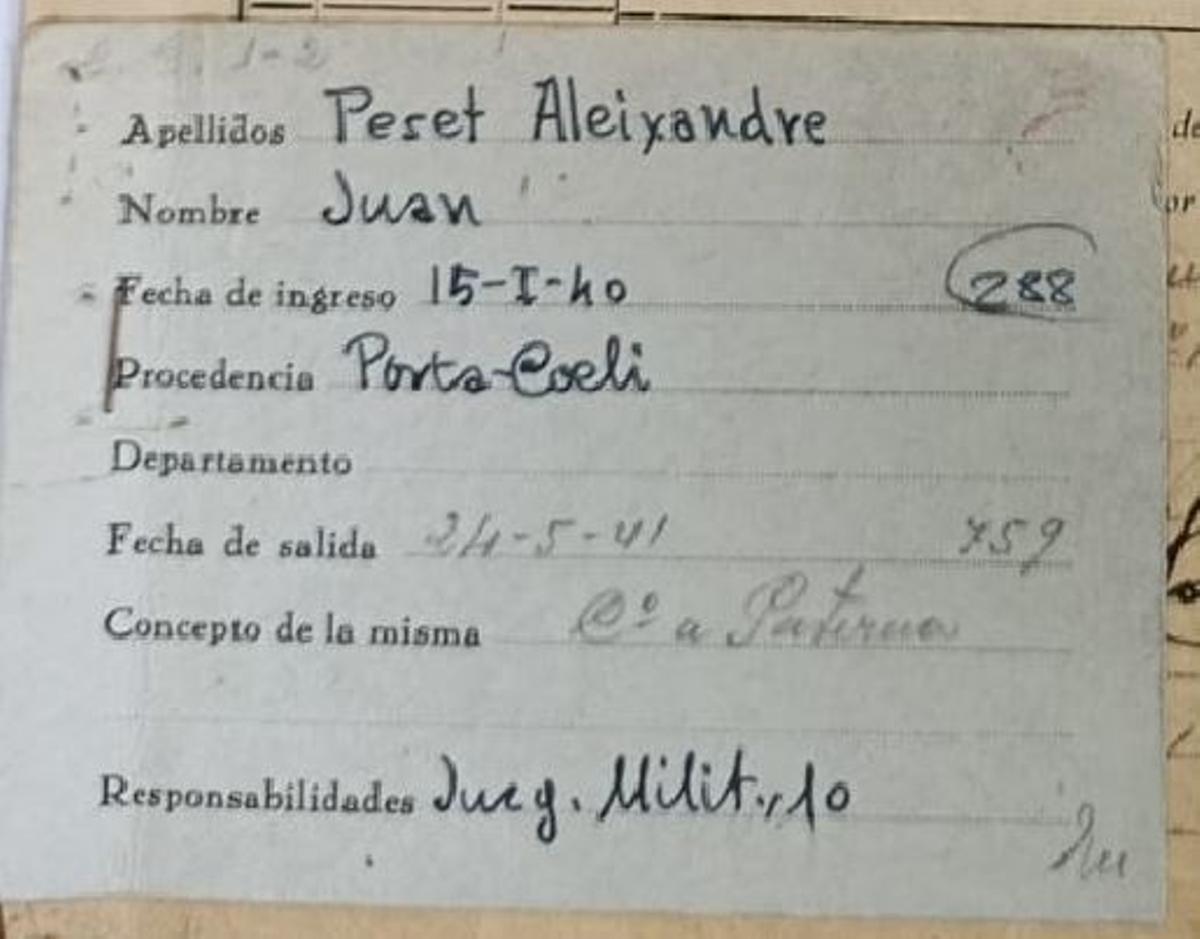 1-2
Apellidos Peset Aleixandre
Nombre Juan
Fecha de ingreso 15-I-40 288
Procedencia Porta-Coeli
Departamento
Fecha de salida 24-5-41 759
Concepto de la misma Cº a Paterna
Responsabilidades Juzg. Milit., 10